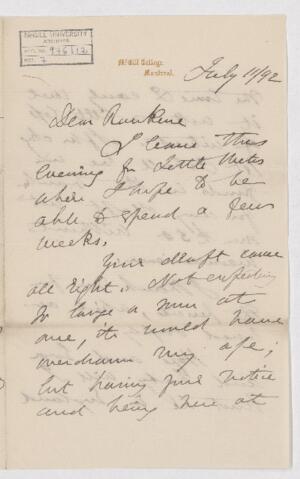 McGILL UNIVERSITY
ARCHIVES
ACC. NO. 976/12
REF. 7
McGill College,
Montreal.
July 11/92
Dear Rankine
I leave this
evening for Little Metis
where I hope to be
able to spend a few
weeks.
Your draft came
all right. Not expecting
so large a sum at
one, it would have
overdrawn my a/c;
but having five notice
and being here at